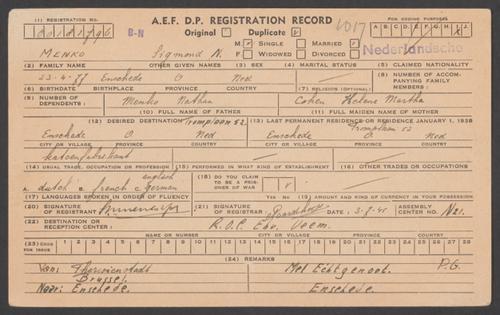 (1) REGISTRATION NO.
A.E.F. D.P. REGISTRATION RECORD
FOR CODING PURPOSES
B-N
Original Duplicate
A. B. C. D. E. F. G. H. I. J.
M. Single Married
F. Widowed Divorced
Nederlandsche
MENKO Sigmond N.
(2) FAMILY NAME OTHER GIVEN NAMES (3) SEX (4) MARITAL STATUS (5) CLAIMED NATIONALITY
23-4-87 Enschede O Ned
(6) BIRTHDATE BIRTHPLACE PROVINCE COUNTRY (7) RELIGION (OPTIONAL) (8) NUMBER OF ACCOMPANYING FAMILY MEMBERS:
(9) NUMBER OF DEPENDENTS: Menko Nathan Cohen Helene Martha
(10) FULL NAME OF FATHER (11) FULL MAIDEN NAME OF MOTHER
(12) DESIRED DESTINATION Tromplaan 52 (13) LAST PERMANENT RESIDENCE OR RESIDENCE JANUARY 1, 1938
Tromplaan 52
Enschede O Ned Enschede O Ned
CITY OR VILLAGE PROVINCE COUNTRY CITY OR VILLAGE PROVINCE COUNTRY
katoenfabrikant
(14) USUAL TRADE, OCCUPATION OR PROFESSION (15) PERFORMED IN WHAT KIND OF ESTABLISHMENT (16) OTHER TRADES OR OCCUPATIONS
english
a. dutch b. french c. german
(18) DO YOU CLAIM TO BE A PRISONER OF WAR
(17) LANGUAGES SPOKEN IN ORDER OF FLUENCY Yes No (19) AMOUNT AND KIND OF CURRENCY IN YOUR POSSESSION
(20) SIGNATURE OF REGISTRANT: (21) SIGNATURE OF REGISTRAR: DATE: ASSEMBLY CENTER NO. N21.
(22) DESTINATION OR RECEPTION CENTER: R.O.C. Ehv. Veem.
NAME OR NUMBER CITY OR VILLAGE PROVINCE COUNTRY
(23) CODE FOR ISSUE 1 2 3 4 5 6 7 8 9 10 11 12 13 14 15 16 17 18 19 20 21 22 23 24 25 26 27 28
(24) REMARKS
Van: Theresienstadt Met Echtgenoot. P.G.
Brussel.
Naar: Enschede. Enschede.